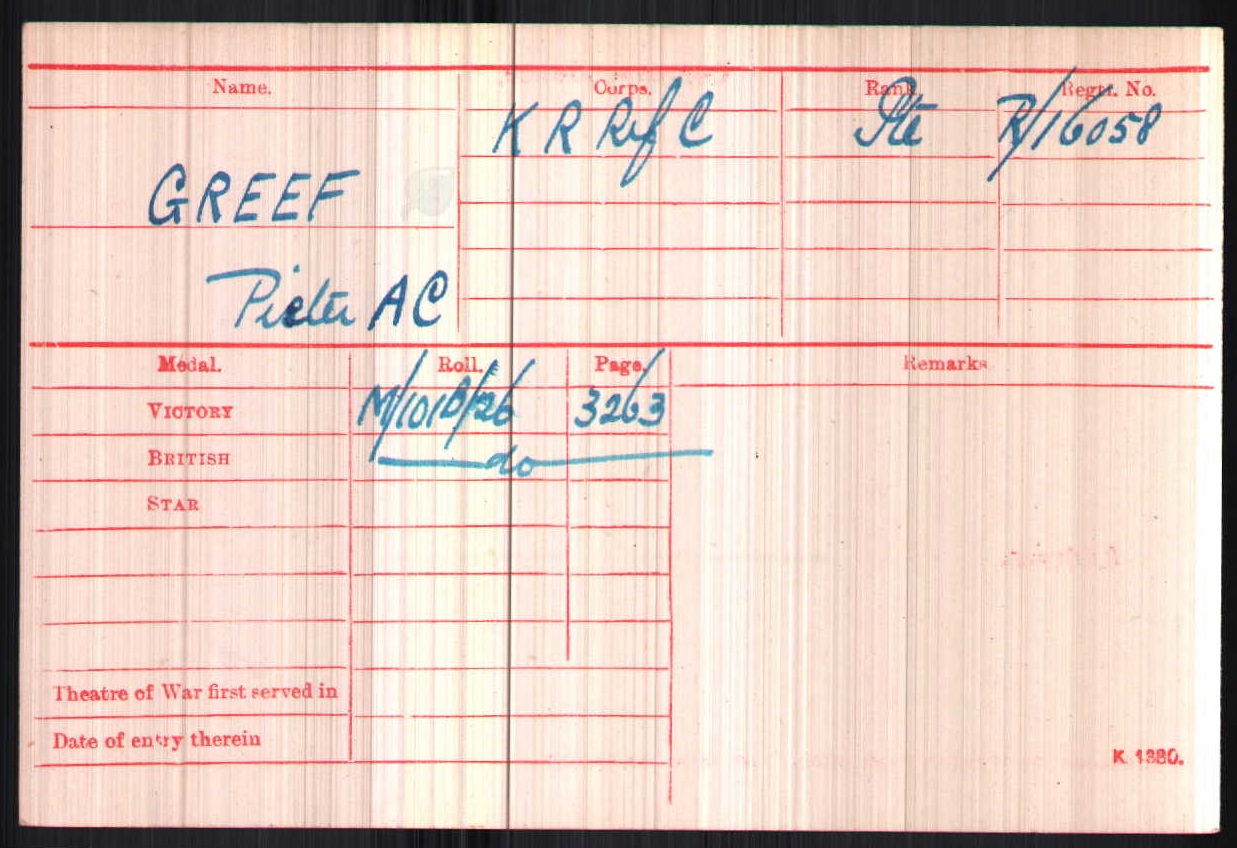 Name. Corps. Rank Regtl. No.
K R Rif C Pte R/16058
GREEF
Pieter A C
Medal. Roll. Page. Remarks
VICTORY M/101B/26 3263
BRITISH do
STAR
Theatre of War first served in
Date of entry therein
K 1380.